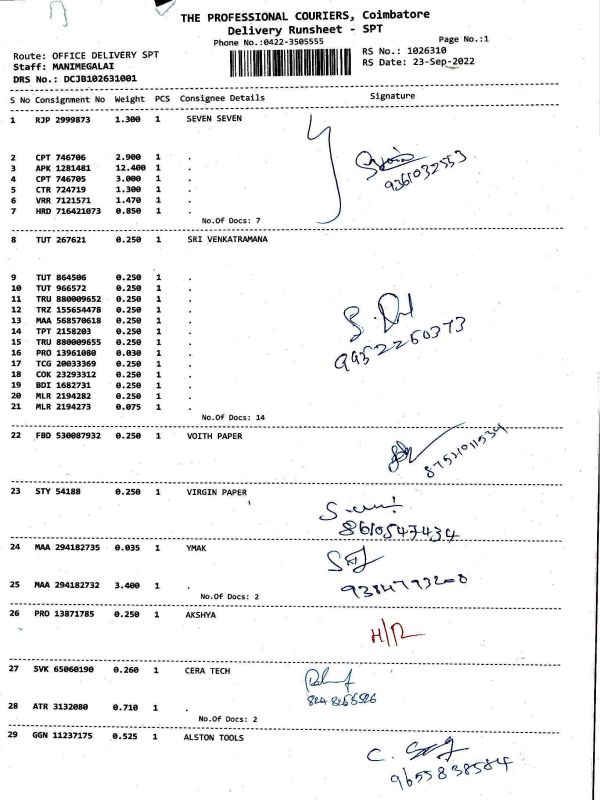 THE PROFESSIONAL COURIERS, Coimbatore
Delivery Runsheet - SPT
Phone No.:0422-3505555
Page No.:1
Route: OFFICE DELIVERY SPT
Staff: MANIMEGALAI
DRS No.: DCJB102631001
RS No.: 1026310
RS Date: 23-Sep-2022
S No Consignment No Weight PCS Consignee Details Signature
1 RJP 2999873 1.300 1 SEVEN SEVEN
2 CPT 746706 2.900 1 .
3 APK 1281481 12.400 1 .
4 CPT 746705 3.000 1 .
5 CTR 724719 1.300 1 .
6 VRR 7121571 1.470 1 .
7 HRD 716421073 0.850 1 .
9361032553
No.Of Docs: 7
8 TUT 267621 0.250 1 SRI VENKATRAMANA
9 TUT 864506 0.250 1 .
10 TUT 966572 0.250 1 .
11 TRU 880009652 0.250 1 .
12 TRZ 155654478 0.250 1 .
13 MAA 568570618 0.250 1 .
14 TPT 2158203 0.250 1 .
15 TRU 880009655 0.250 1 .
16 PRO 13961080 0.030 1 .
17 TCG 20033369 0.250 1 .
18 COK 23293312 0.250 1 .
19 BDI 1682731 0.250 1 .
20 MLR 2194282 0.250 1 .
21 MLR 2194273 0.075 1 .
9952260373
No.Of Docs: 14
22 FBD 530087932 0.250 1 VOITH PAPER
23 STY 54188 0.250 1 VIRGIN PAPER
8610547434
24 MAA 294182735 0.035 1 YMAK
25 MAA 294182732 3.400 1 .
No.Of Docs: 2
26 PRO 13871785 0.250 1 AKSHYA
H/R
27 SVK 65060190 0.260 1 CERA TECH
28 ATR 3132080 0.710 1 .
No.Of Docs: 2
29 GGN 11237175 0.525 1 ALSTON TOOLS
9655838584